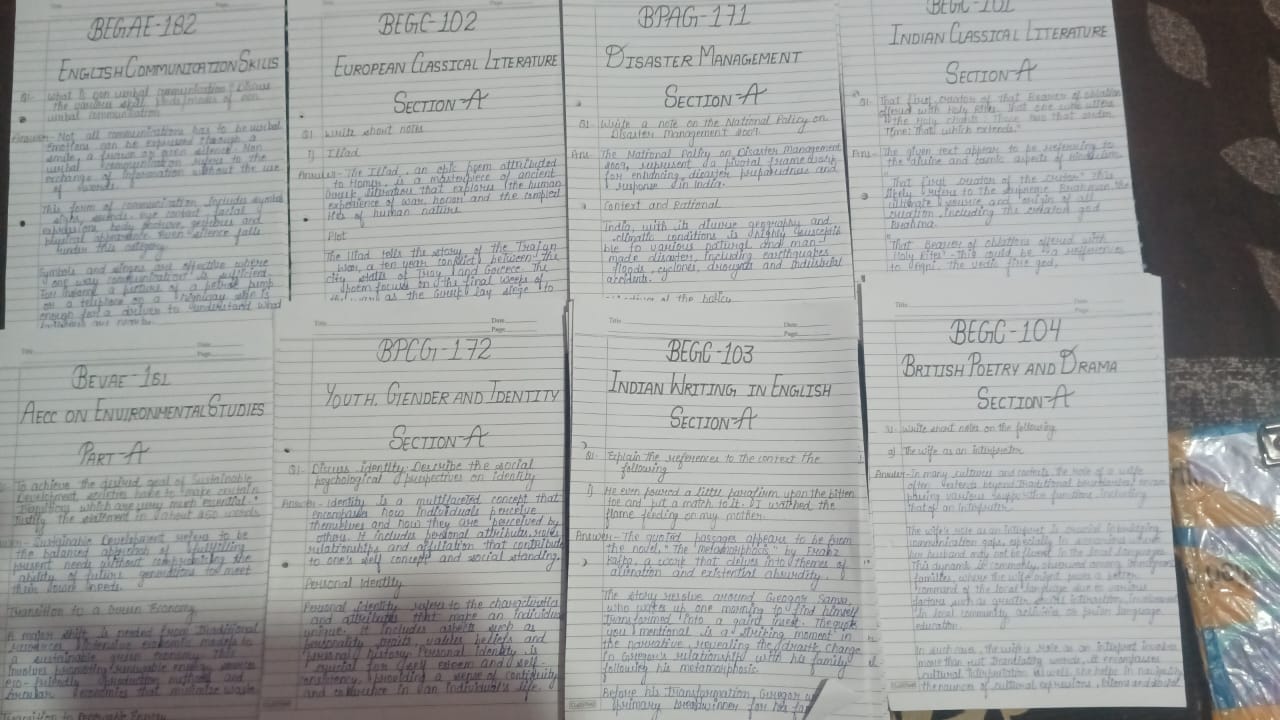 BEGAE-182
ENGLISH COMMUNICATION SKILLS
Q1- What is non verbal communication? Discuss
the various
verbal communication
Answer- Not all communications has to be verbal
Emotions can be expressed through a
smile, a or even silence. Non
verbal communication refers to the
exchange of information without the use
of words.
This form of communication includes symbol
signs, sounds, eye contact, facial
expressions, body posture, gestures and
physical appearance. Even silence falls
under this category
Symbols and are effective where
one way communication is sufficient.
For instance a picture of a petrol pump
or a telephone on a sign is
enough for a driver to understand what
BEGC-102
EUROPEAN CLASSICAL LITERATURE
SECTION-A
Q1 Write short notes
1) Iliad
Answer- The Iliad, an epic poem attributed
to Homer, is a masterpiece of ancient
literature that explores the human
experience of war, honor and the
of human nature.
Plot
The Iliad tells the story of the Trojan
War, a ten year conflict between the
city states of Troy and Greece. The
poem focus on the final weeks of
the war as the Greek lay siege to
BPAG-171
DISASTER MANAGEMENT
SECTION-A
Q1- Write a note on the National Policy on
Disaster Management 2009.
Ans- The National Policy on Disaster Management
2009, represent a pivotal framework
for enhancing disaster preparedness and
response in India.
Context and Rational
India, with its diverse geography and
climatic conditions is highly
to various natural and man-
made disaster, including earthquakes
floods, cyclones, droughts and industrial
accidents.
of the policy
BEGC-101
INDIAN CLASSICAL LITERATURE
SECTION-A
Q1- That first creator of that Bearer of oblation
offered with Holy Rites, That one who utters
the Holy chants: Those two that
Time: That which extends."
Ans- The given text appear to be referring to
the divine and aspects of Hinduism.
"That first creator of the creator" This
likely refers to the supreme Brahman, the
ultimate source and origin of all
creation, including the creator god
Brahma.
"That Bearer of oblations offered with
Holy Rites" - This could be a
to Agni, the vedic fire god,
Title Date
Page
BEVAE-181
AECC ON ENVIRONMENTAL STUDIES
PART-A
To achieve the desired goal of Sustainable
Development societies have to make certain
transitions which are very much essential"
Justify the statement in about 250 words.
Sustainable Development refers to
the balanced approach of fulfilling
present needs without compromising the
ability of future generations to meet
their own needs.
Transition to a Green Economy
A major shift is needed from Traditional
resources intensive economic models to
a sustainable green economy. This
involves promoting renewable energy sources
eco-friendly production methods and
circular economies that minimize waste.
Title Date
Page
BPCG-172
YOUTH, GENDER AND IDENTITY
SECTION-A
Q1- Discuss identity. Describe the social
psychological perspectives on identity
Answer- Identity is a multifaceted concept that
encompasses how individuals perceive
themselves and how they are perceived by
others. It includes personal attributes, roles
relationships and affiliation that contribute
to one's self concept and social standing.
Personal Identity
Personal identity refers to the characteristics
and attributes that make an individual
unique. It includes aspects such as
personality traits, values beliefs and
personal history. Personal identity is
crucial for self esteem and self-
consistency, providing a sense of continuity
and coherence in an individual's life.
Title Date
Page
BEGC-103
INDIAN WRITING IN ENGLISH
SECTION-A
Q1- Explain the references to the context the
following
i) He even poured a little paraffin upon the bitten
toe and put a match to it. I watched the
flame feeding on my mother.
Answer- The quoted passages appears to be from
the novel, "The metamorphosis" by Franz
Kafka, a work that delves into themes of
alienation and existential absurdity.
The story revolve around Gregor Samsa,
who wakes up one morning to find himself
transformed into a gaint insect. The quote
you mentional is a striking moment in
the narrative, revealing the drastic change
in Gregor's relationship with his family
following his metamorphosis.
Before his transformation, Gregor
primary breadwinner for his
Title Date
Page
BEGC-104
BRITISH POETRY AND DRAMA
SECTION-A
Q1- Write short notes on the following
a) The wife as an interpreter
Answer- In many cultures and contexts, the role of a wife
often extends beyond traditional
various supportive functions including
that of an interpreter.
The wife's role as an interpret is crucial in
communication gaps, especially in scenarios where
her husband may not be fluent in the local language
This dynamic is commonly observed among
families, where the wife might
command of the local language due to various
factors such as greater social interaction, involvement
in local community, or prior language
education.
In such case, the wife's role as an interpret involves
more than just translating words, it encompasses
cultural interpretation as well, she helps in
the nuances of cultural expressions, idioms and social